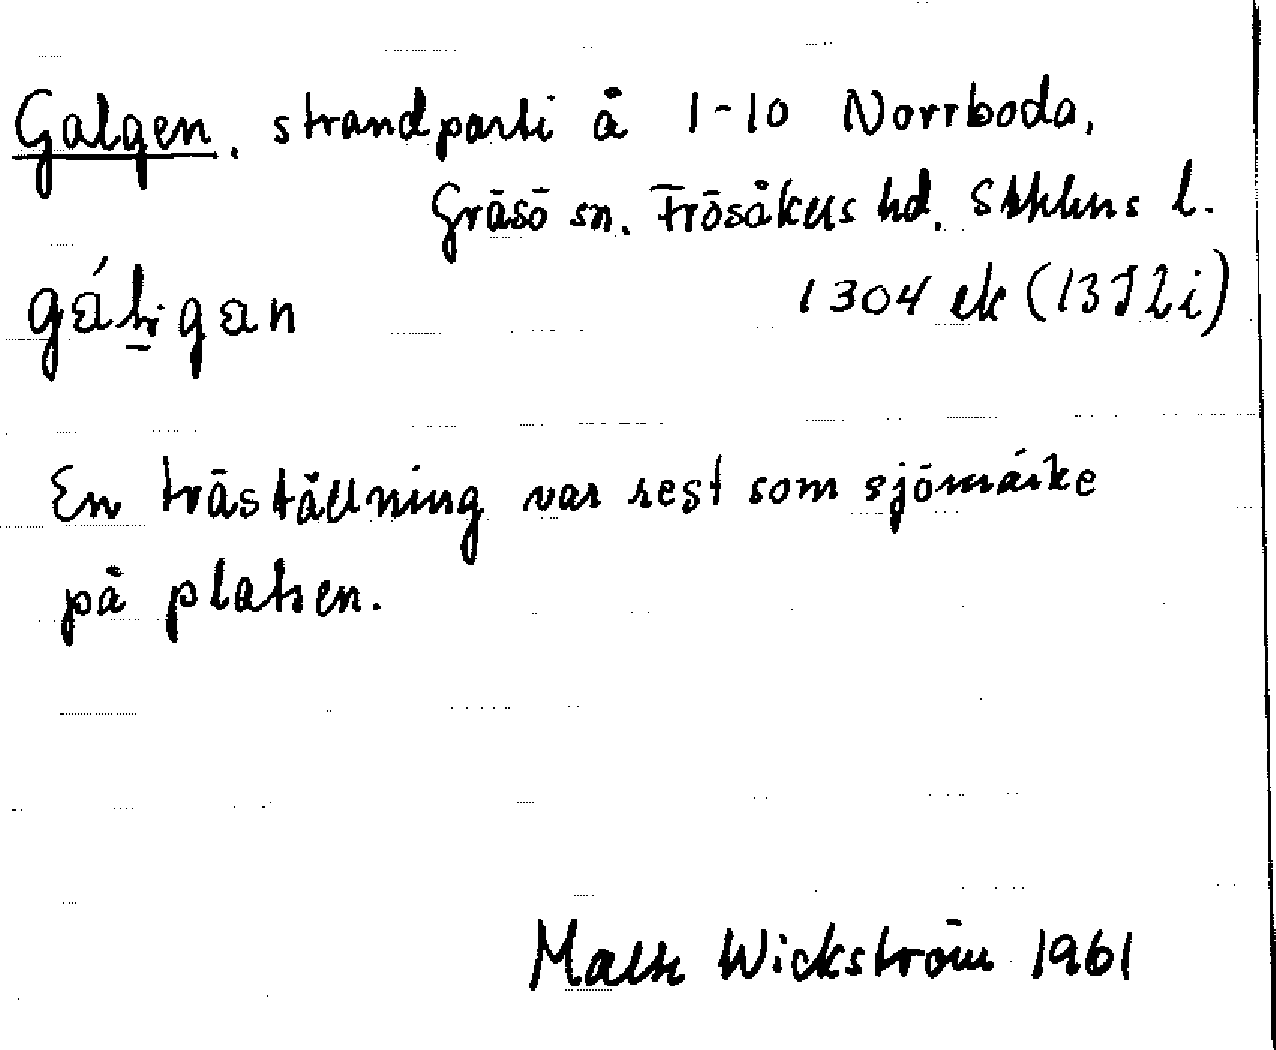 Galgen, strandparti å 1-10 Norrboda,
Gräsö sn. Frösåkers hd. Sthlms l.
1304 ek (13I2i)
En träställning var rest som sjömärke
på platsen.
Wickström 1961